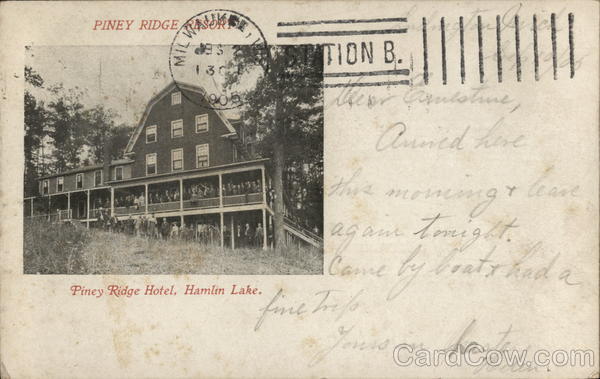 PINEY RIDGE RESORT
MILWAUKEE
1905
STATION B.
Dear Ernestine,
Arrived here
this morning & leave
again tonight.
Came by boat & had a
fine trip
Yours in haste
Piney Ridge Hotel, Hamlin Lake.
CardCow.com